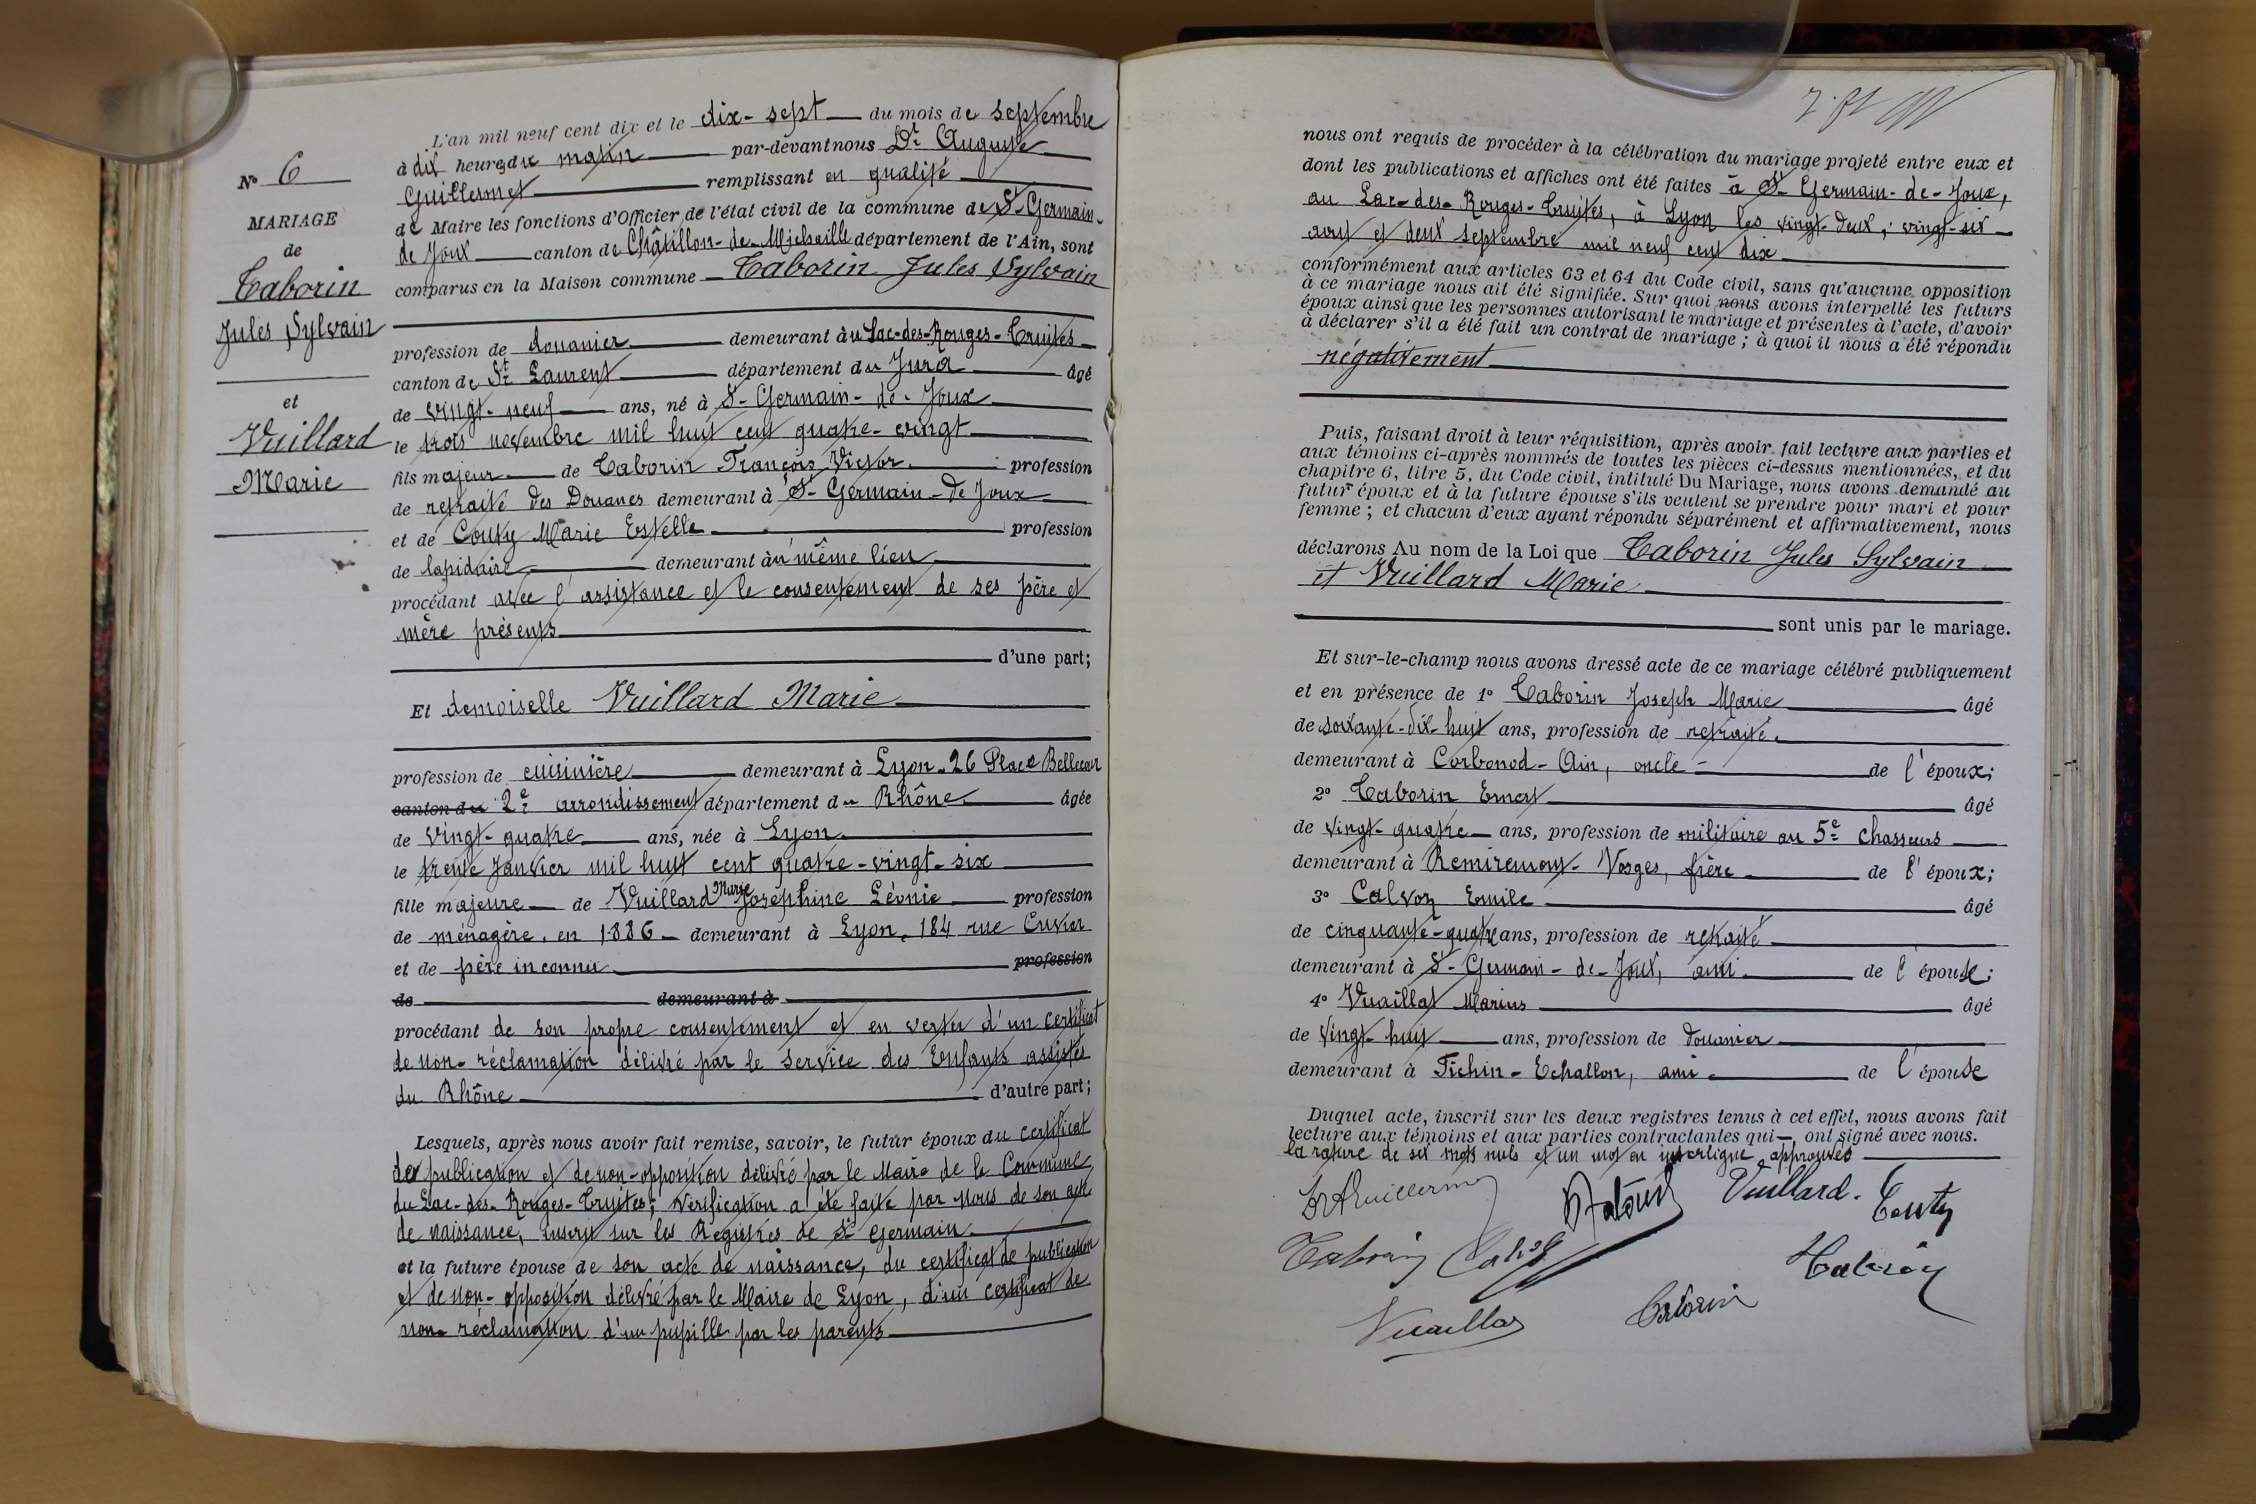 N° 6
MARIAGE
de
Taborin
Jules Sylvain
et
Vuillard
Marie
L'an mil neuf cent dix et le dix-sept du mois de septembre
à dix heures du matin par-devant nous Dr Auguste
Guillermet remplissant en qualité
de Maire les fonctions d'Officier de l'état civil de la commune de St-Germain-
de Joux canton de Châtillon-de-Michaille département de l'Ain, sont
comparus en la Maison commune Taborin Jules Sylvain
profession de douanier demeurant au Lac-des-Rouges-Truites
canton de St Laurent département du Jura âgé
de vingt-neuf ans, né à St-Germain-de-Joux
le trois novembre mil huit cent quatre-vingt
fils majeur de Taborin François Victor profession
de retraité des Douanes demeurant à St-Germain-de Joux
et de Couty Marie Estelle profession
de lapidaire demeurant au même lieu
procédant avec l'assistance et le consentement de ses père et
mère présents
d'une part;
Et demoiselle Vuillard Marie
profession de cuisinière demeurant à Lyon-26 Place Bellecour
canton du 2e arrondissement département du Rhône âgée
de vingt-quatre ans, née à Lyon
le trente Janvier mil huit cent quatre-vingt-six
fille majeure de Vuillard Marie Joséphine Léonie profession
de ménagère, en 1886 demeurant à Lyon, 184 rue Cuvier
et de père inconnu profession
de demeurant à
procédant de son propre consentement et en vertu d'un certificat
de non-réclamation délivré par le service des Enfants assistés
du Rhône d'autre part;
Lesquels, après nous avoir fait remise, savoir, le futur époux du certificat
de publication et de non-opposition délivré par le Maire de la Commune
du Lac-des-Rouges-Truites; vérification a été faite par nous de son acte
de naissance, inscrit sur les Registres de St Germain
et la future épouse de son acte de naissance, du certificat de publication
et de non-opposition délivré par le Maire de Lyon, d'un certificat de
non-réclamation d'un pupille par les parents
nous ont requis de procéder à la célébration du mariage projeté entre eux et
dont les publications et affiches ont été faites à St-Germain-de-Joux,
au Lac-des-Rouges-Truites, à Lyon les vingt-deux, vingt-six
août et deux septembre mil neuf cent dix
conformément aux articles 63 et 64 du Code civil, sans qu'aucune opposition
à ce mariage nous ait été signifiée. Sur quoi nous avons interpellé les futurs
époux ainsi que les personnes autorisant le mariage et présentes à l'acte, d'avoir
à déclarer s'il a été fait un contrat de mariage; à quoi il nous a été répondu
négativement
Puis, faisant droit à leur réquisition, après avoir fait lecture aux parties et
aux témoins ci-après nommés de toutes les pièces ci-dessus mentionnées, et du
chapitre 6, titre 5, du Code civil, intitulé Du Mariage, nous avons demandé au
futur époux et à la future épouse s'ils veulent se prendre pour mari et pour
femme; et chacun d'eux ayant répondu séparément et affirmativement, nous
déclarons Au nom de la Loi que Taborin Jules Sylvain
et Vuillard Marie
sont unis par le mariage.
Et sur-le-champ nous avons dressé acte de ce mariage célébré publiquement
et en présence de 1° Taborin Joseph Marie âgé
de soixante-dix-huit ans, profession de retraité
demeurant à Corbonod-Ain, oncle de l'époux;
2° Taborin Ernest âgé
de vingt-quatre ans, profession de militaire au 5e Chasseurs
demeurant à Remiremont-Vosges, frère de l'époux;
3° Calvoz Emile âgé
de cinquante-quatre ans, profession de retraité
demeurant à St-Germain-de-Joux, ami de l'épouse;
4° Vuaillat Marius âgé
de vingt-huit ans, profession de douanier
demeurant à Tichin-Echallon, ami de l'épouse
Duquel acte, inscrit sur les deux registres tenus à cet effet, nous avons fait
lecture aux témoins et aux parties contractantes qui ont signé avec nous.
La rature de six mots nuls et un mot en interligne approuvés
Dr A Guillermet Vuillard. Couty
Taborin Calvoz Taborin
Vuaillat Taborin